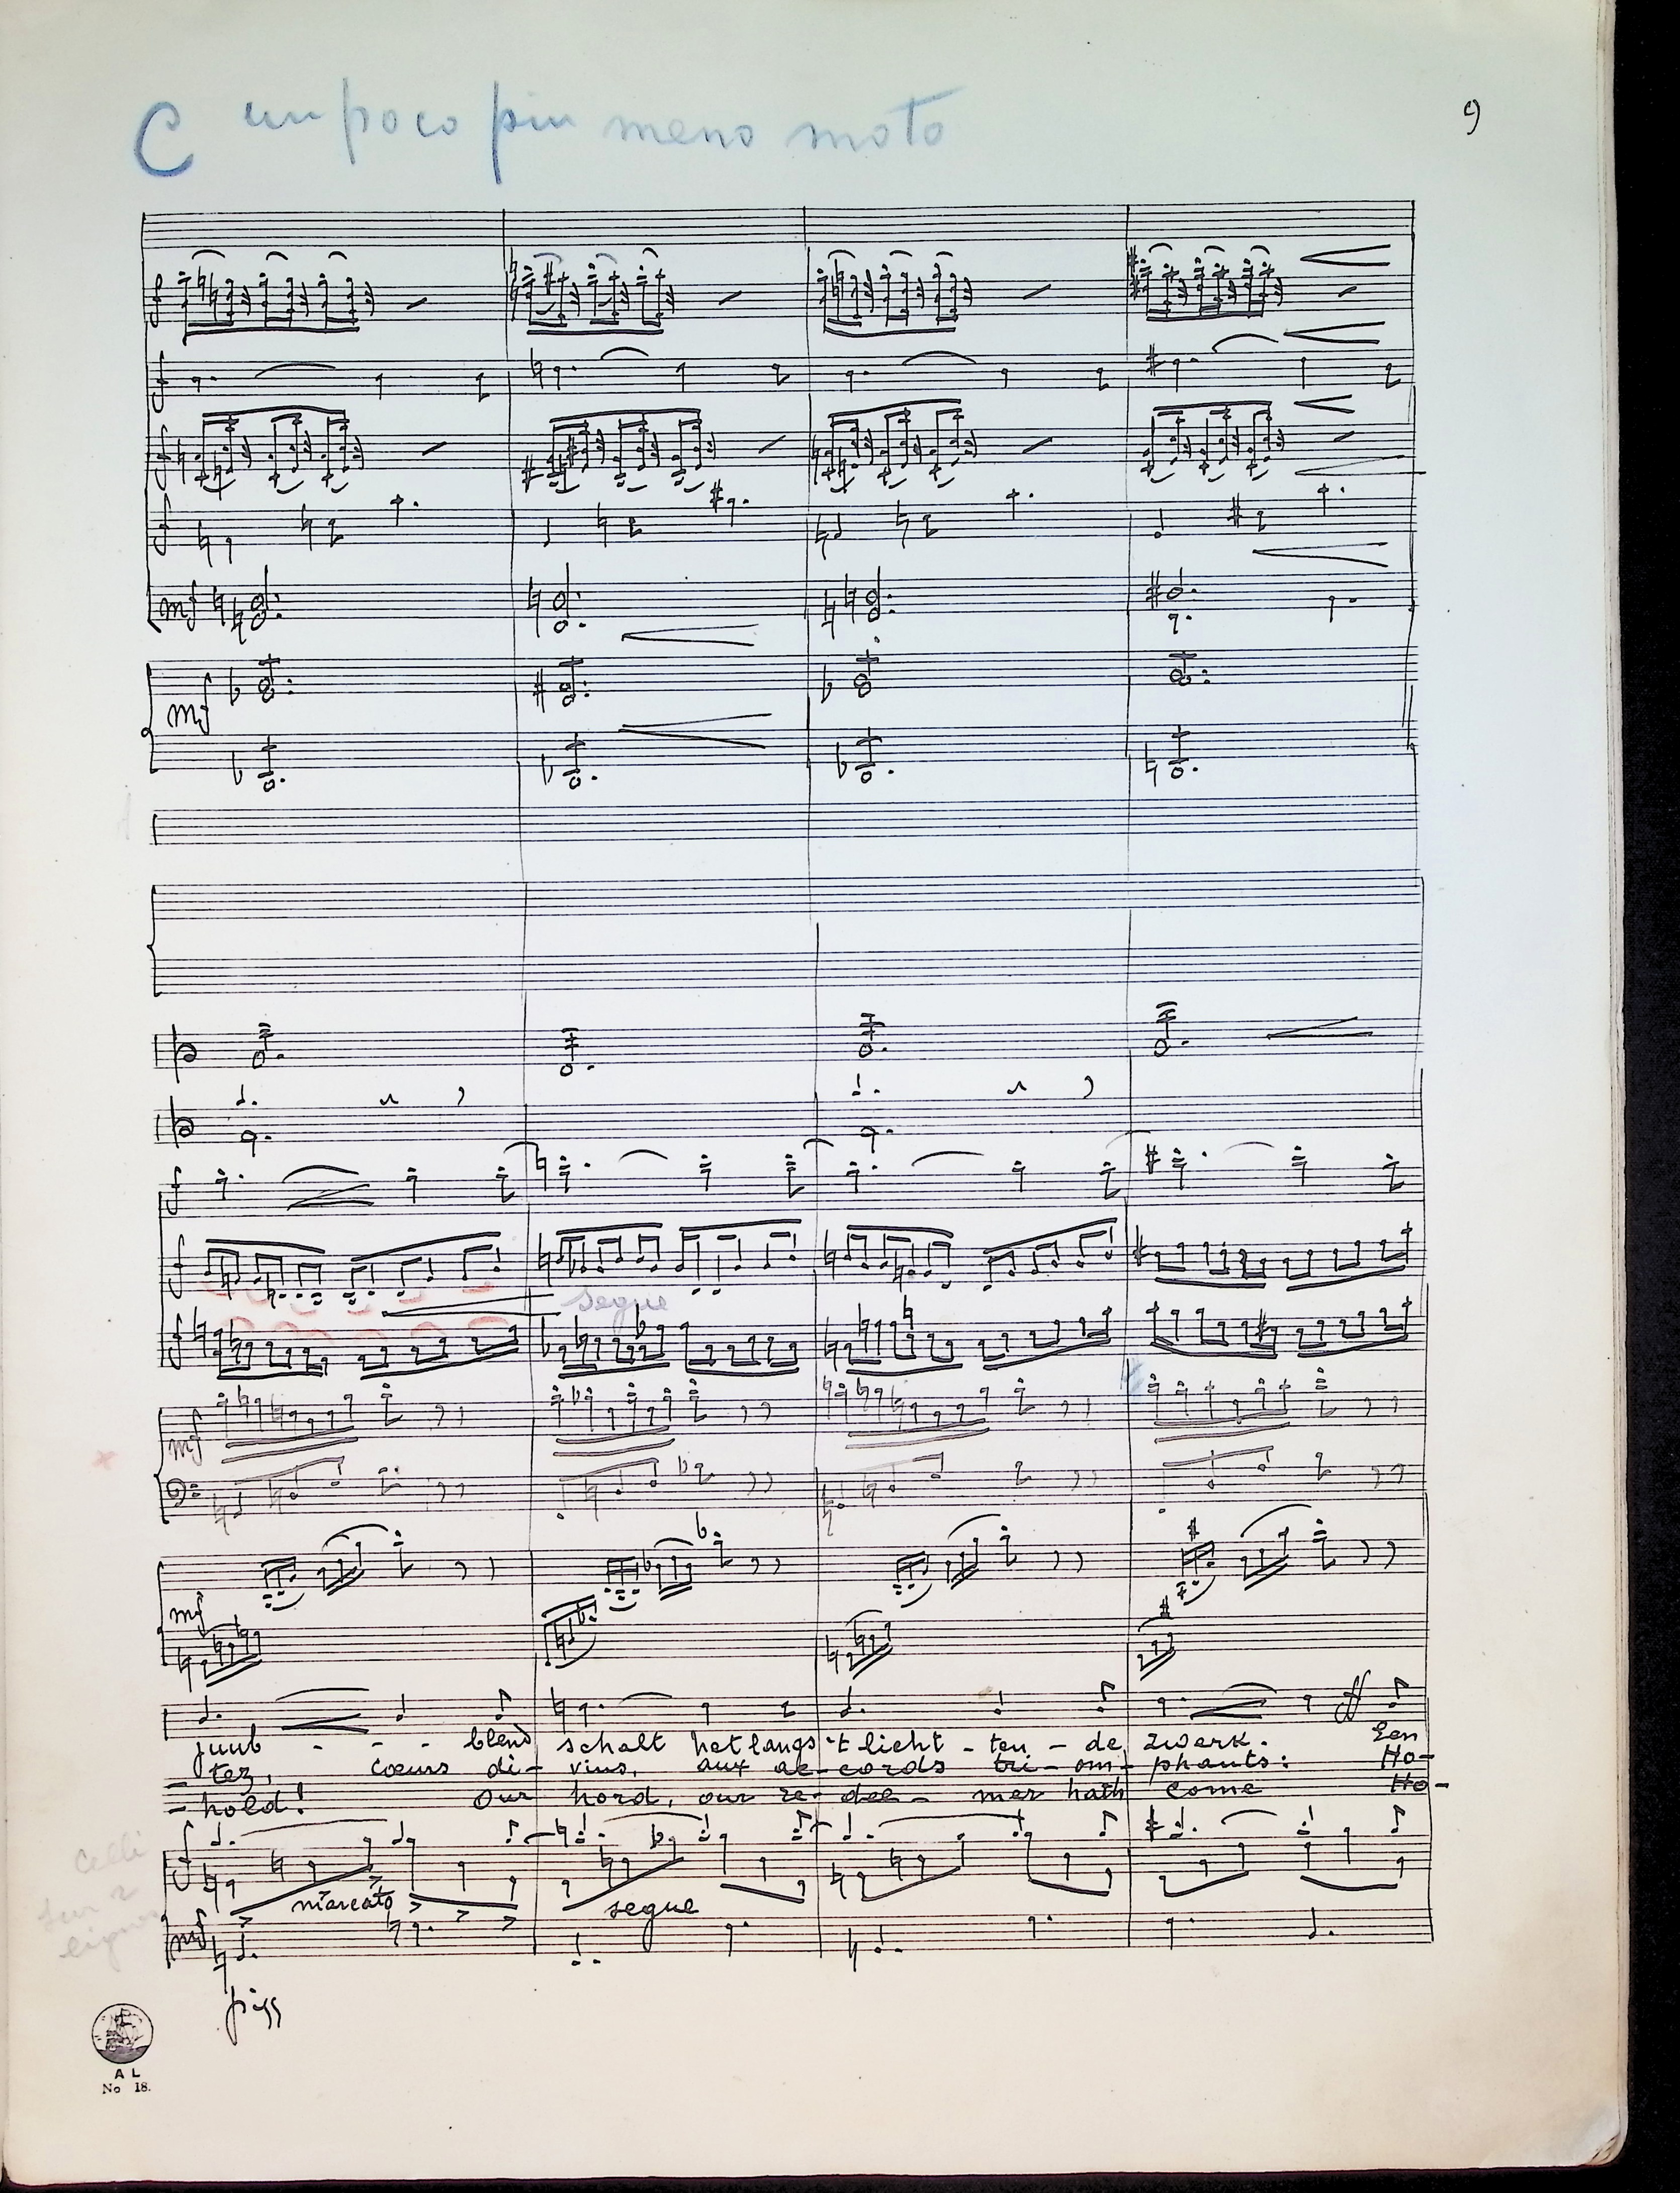 9
C un poco piu meno moto
mf
mf
segue
mf
mf
ff
juub - - - blend schalt het langs 't licht - ten - de zwerk. Een
- tez, cœurs di - vins, aux ac - cords tri - om - phants : Ho -
- hold! Our hord, our re - dee - mer hath come Ho -
Celli
marcato
segue
mf
pizz
A L
No 18.